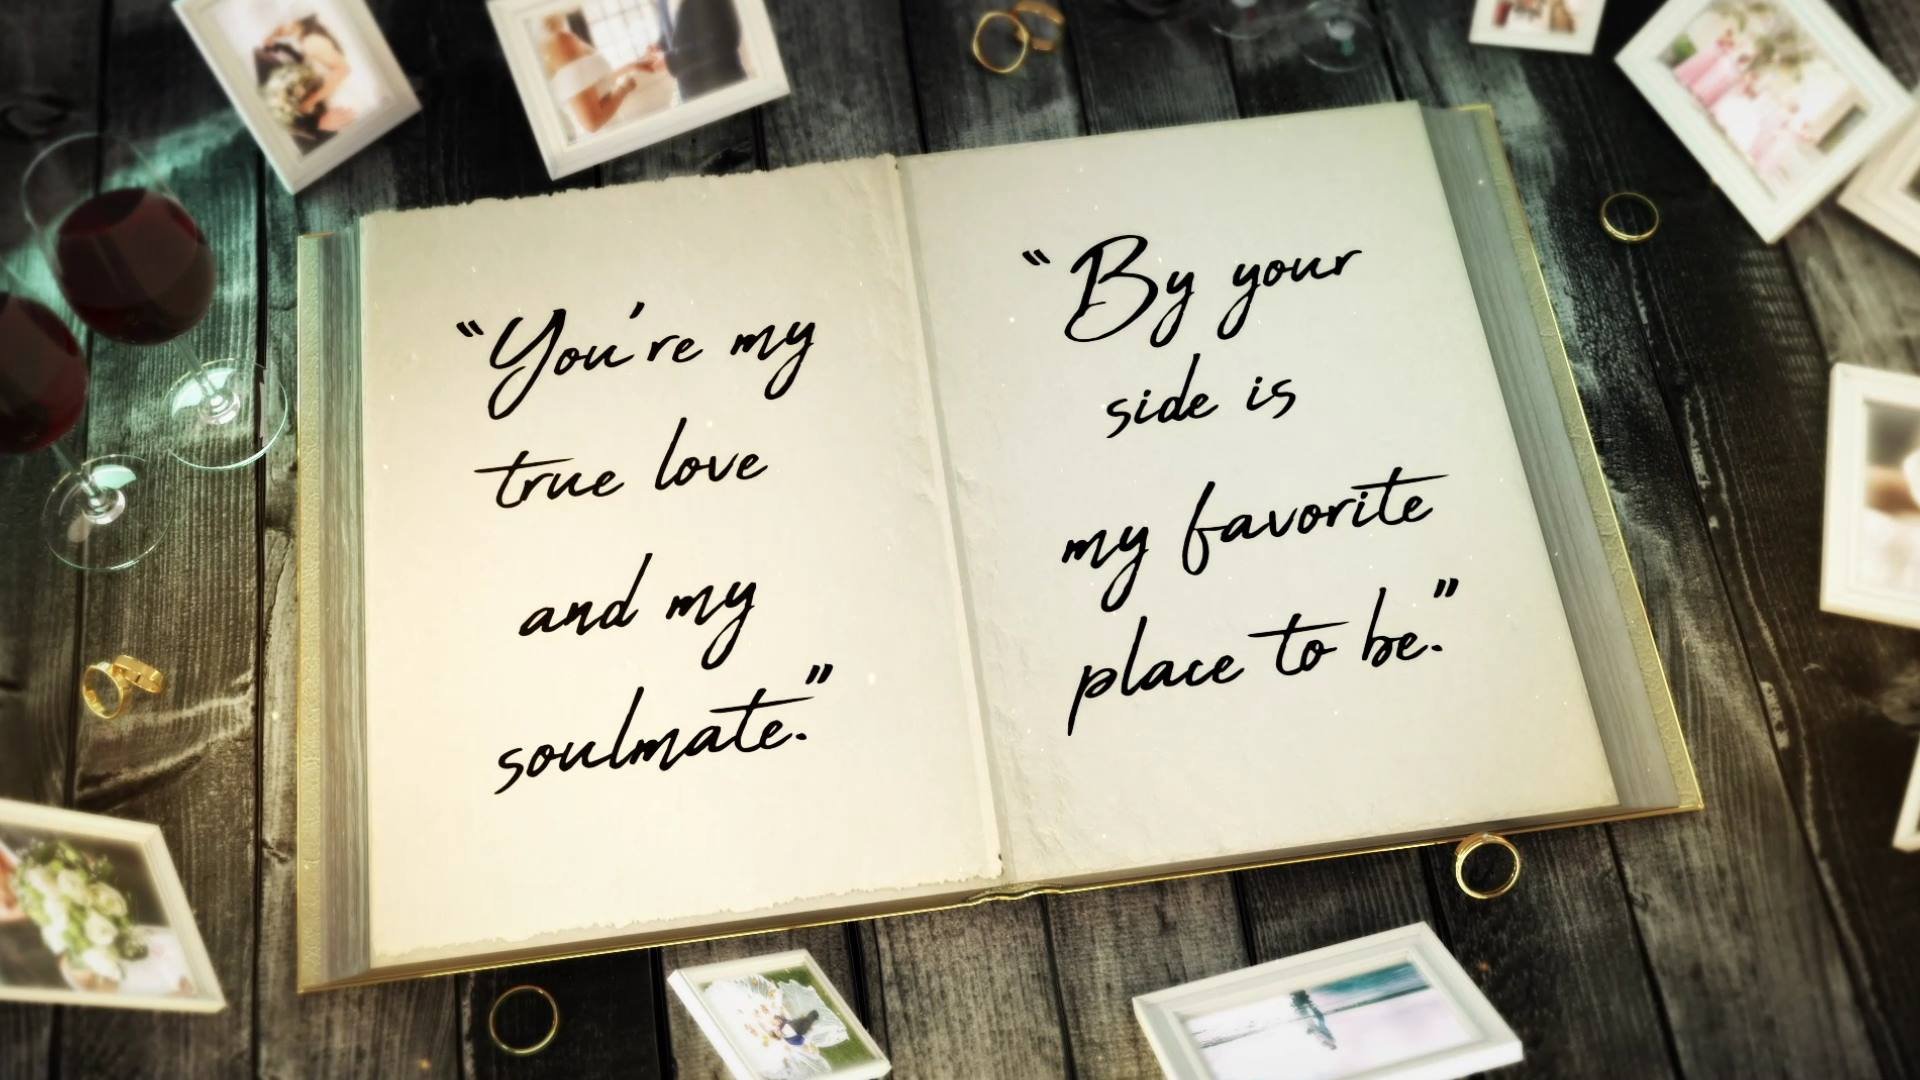 “You're my
true love
and my
soulmate.”
“By your
side is
my favorite
place to be.”